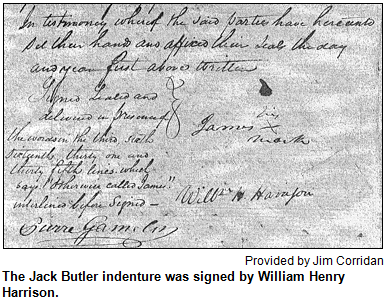 In testimony whereof the said parties have hereunto
set their hands and affixed their seals the day
and year first above written
Signed Sealed and
delivered in presence of
the words in the third, sixth
sixteenth, thirty one and
thirty fifth lines, which
says "otherwise called James"
interlined before signed —
his
James X
mark
Will H. Harrison
Pierre Gamelin
Provided by Jim Corridan
The Jack Butler indenture was signed by William Henry
Harrison.